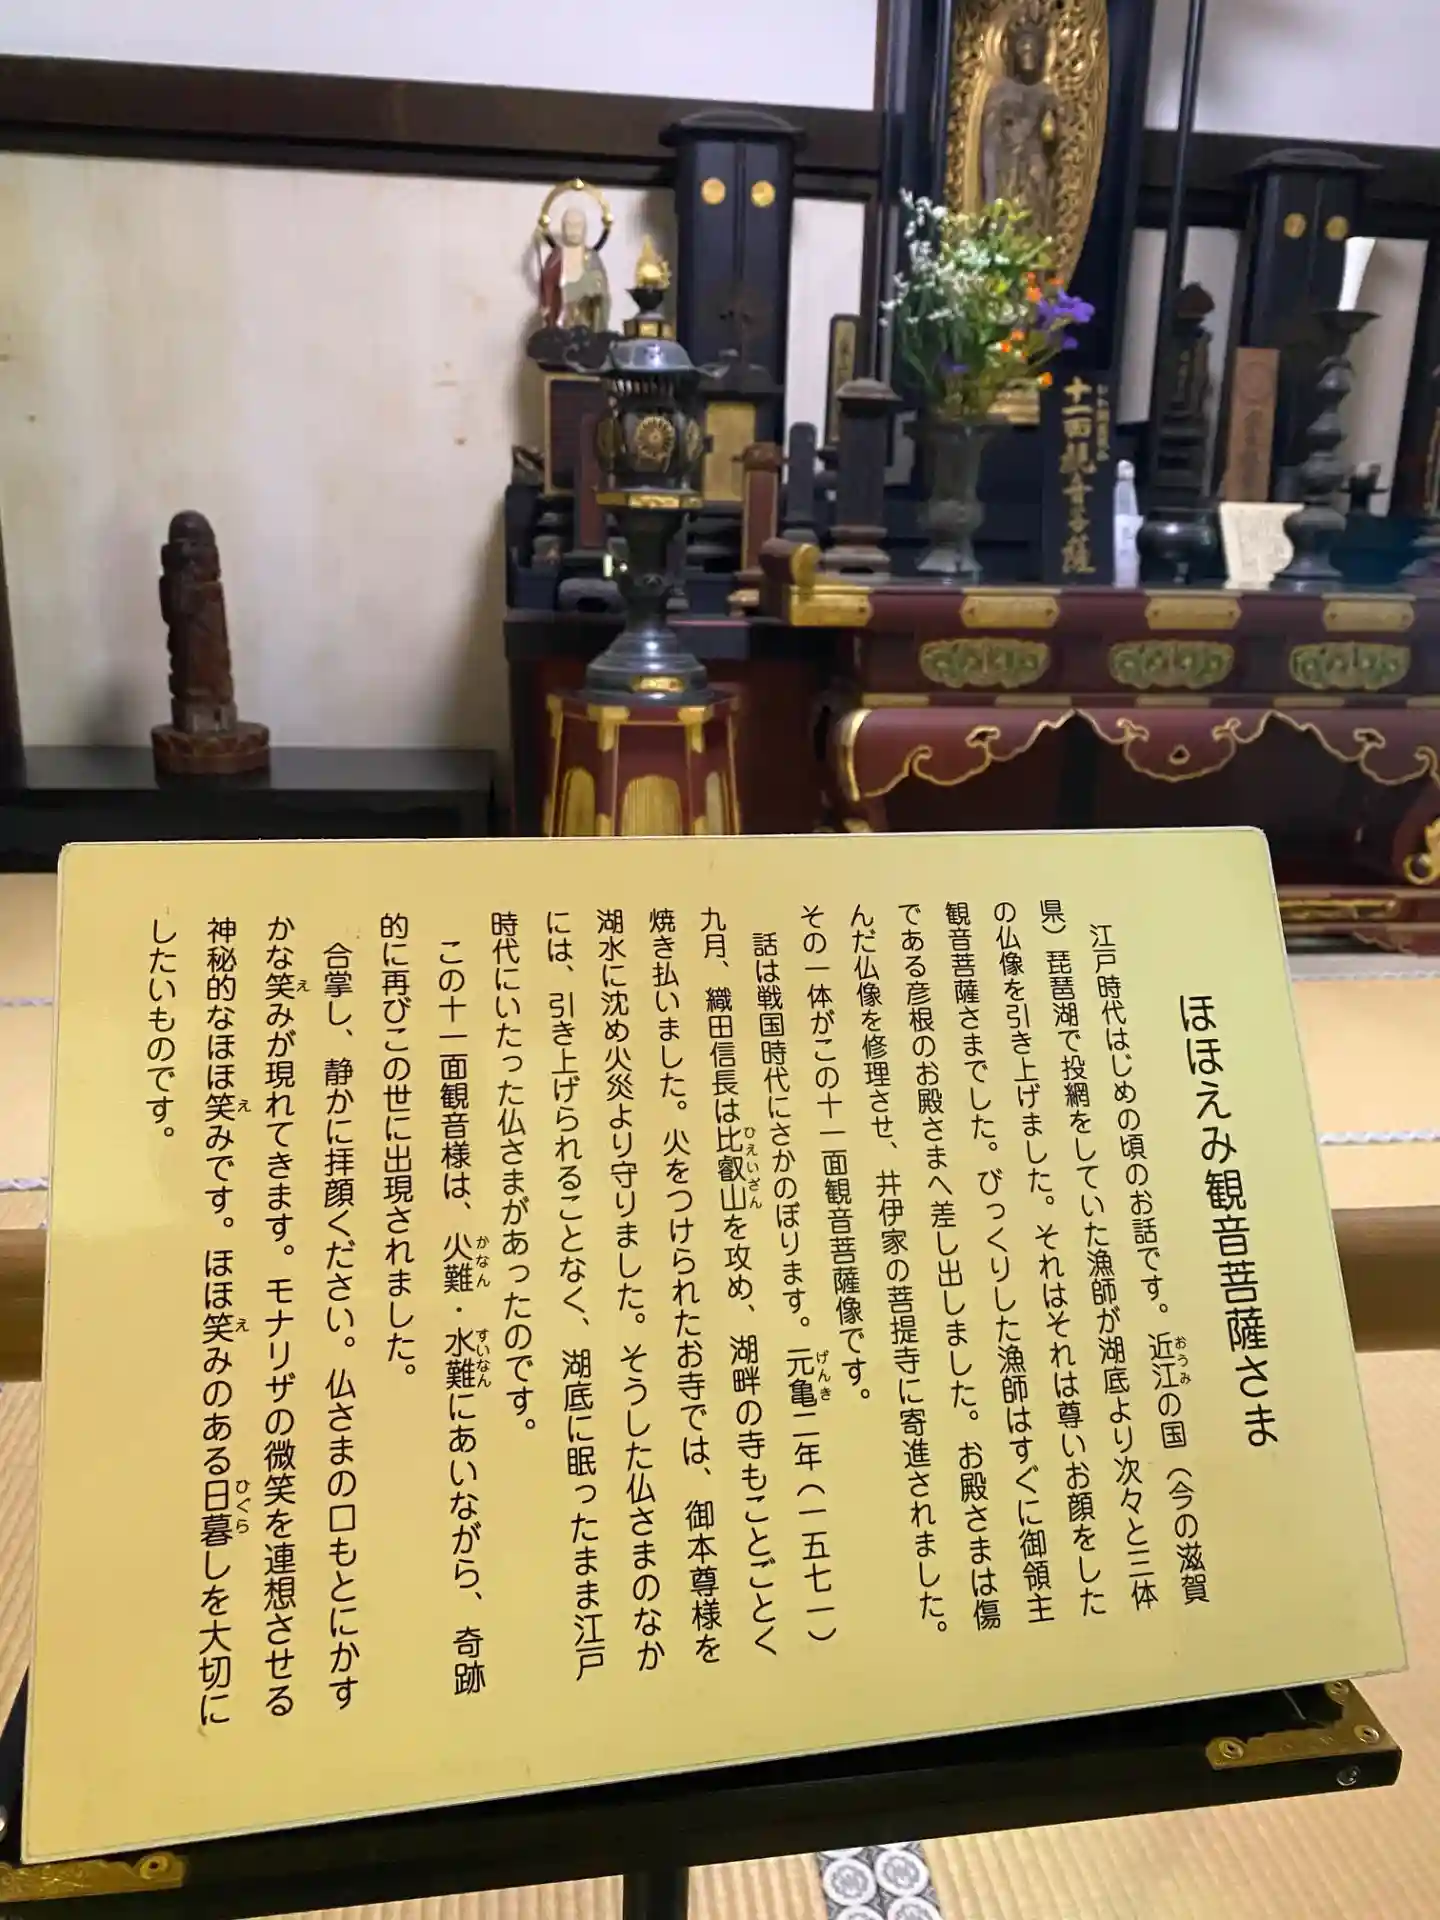 ほほえみ観音菩薩さま
江戸時代はじめの頃のお話です。近江の国（今の滋賀
県）琵琶湖で投網をしていた漁師が湖底より次々と三体
の仏像を引き上げました。それはそれは尊いお顔をした
観音菩薩さまでした。びっくりした漁師はすぐに御領主
である彦根のお殿さまへ差し出しました。お殿さまは傷
んだ仏像を修理させ、井伊家の菩提寺に寄進されました。
その一体がこの十一面観音菩薩像です。
話は戦国時代にさかのぼります。元亀二年（一五七一）
九月、織田信長は比叡山を攻め、湖畔の寺もことごとく
焼き払いました。火をつけられたお寺では、御本尊様を
湖水に沈め火災より守りました。そうした仏さまのなか
には、引き上げられることなく、湖底に眠ったまま江戸
時代にいたった仏さまがあったのです。
この十一面観音様は、火難・水難にあいながら、奇跡
的に再びこの世に出現されました。
合掌し、静かに拝顔ください。仏さまの口もとにかす
かな笑みが現れてきます。モナリザの微笑を連想させる
神秘的なほほ笑みです。ほほ笑みのある日暮しを大切に
したいものです。
おうみ
げんき
ひえいざん
かなん
すいなん
え
え
え
ひぐら
十一面観音菩薩